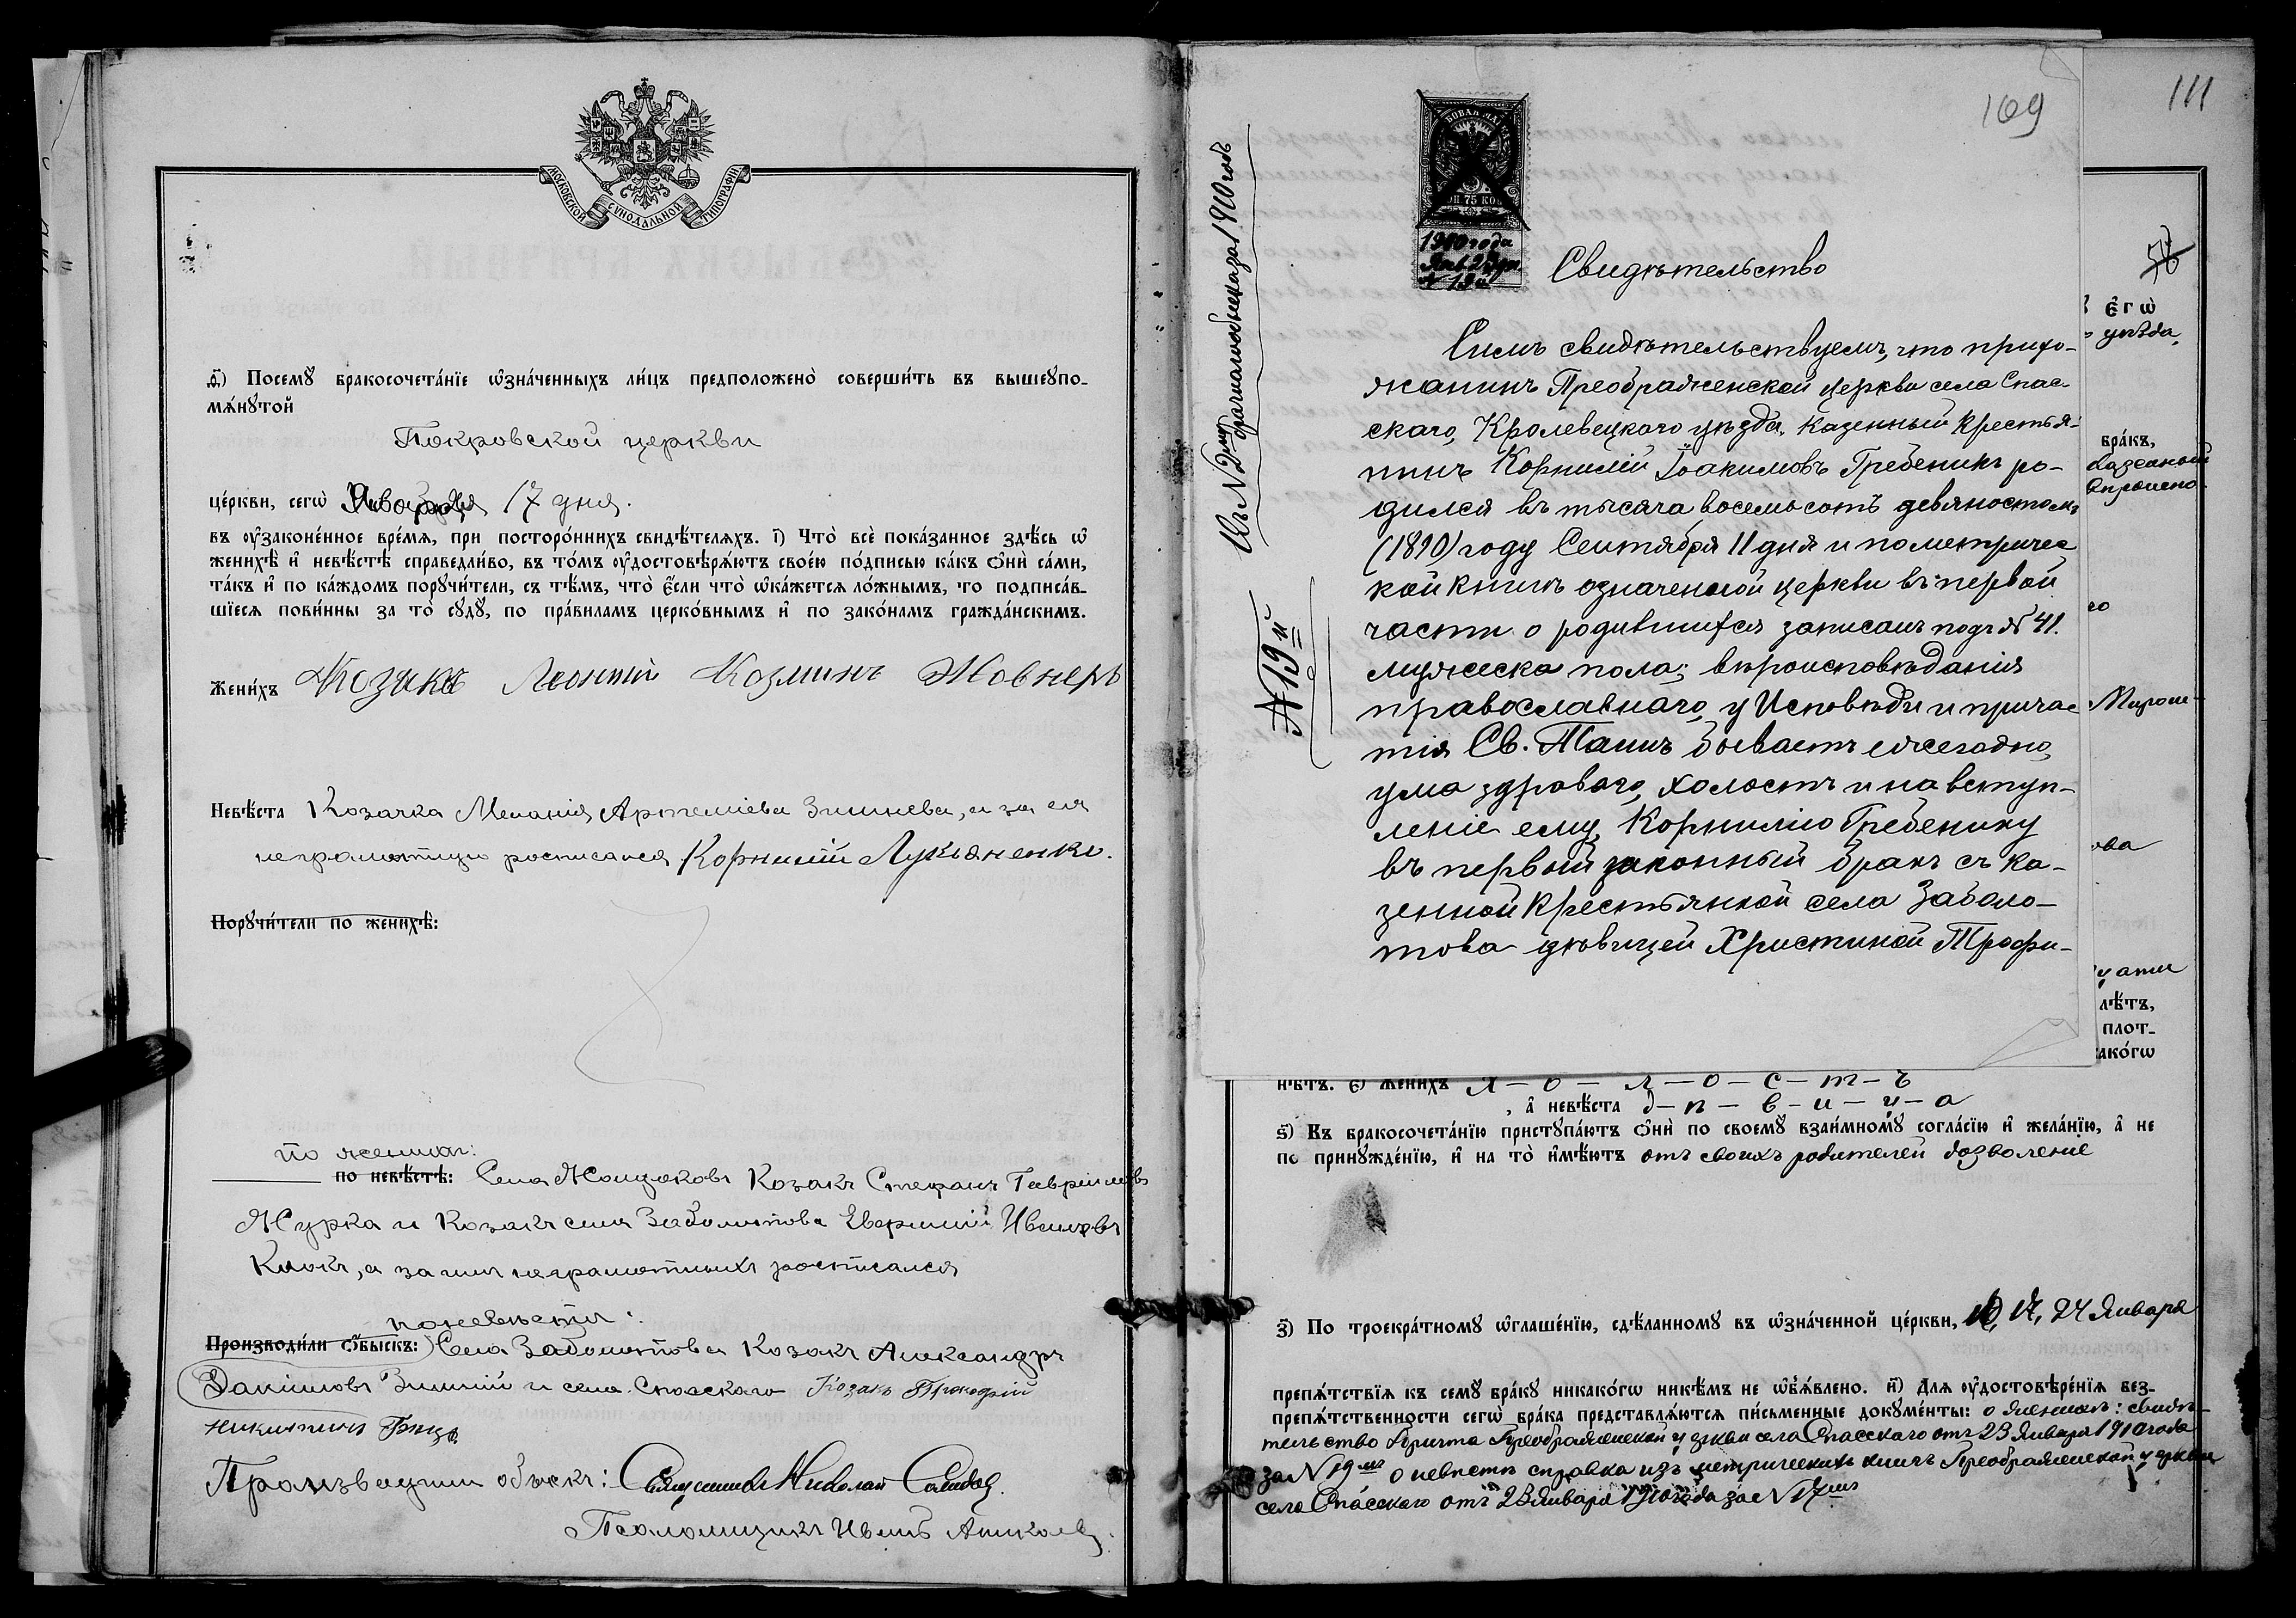 МОСКОВСКОЙ СУНОДАЛЬНОЙ ТИПОГРАФІИ
д҃) Посемꙋ̀ бракосочета́нїе ѡ҆зна́ченныхъ ли́цъ предположено̀ соверши́ть въ вышеꙋпо-
мѧ́нꙋтой
Покровской церкви
це́ркви, сегѡ̀ Января 17 дня.
въ ᲂу҆законе́нное вре́мѧ, при посторо́ннихъ свидѣ́телѧхъ. і҃) Что̀ всѐ пока́занное здѣ́сь ѡ҆
женихѣ̀ и҆ невѣ́стѣ справедли́во, въ то́мъ ᲂу҆достовѣрѧ́ютъ свое́ю по́дписью ка́къ ѻ҆нѝ са́ми,
та́къ и҆ по ка́ждомъ порꙋчи́тели, съ тѣ́мъ, что̀ є҆́сли что̀ ѡ҆ка́жетсѧ ло́жнымъ, то подписа́в-
шїесѧ пови́нны за то̀ сꙋдꙋ̀, по пра́виламъ церко́внымъ и҆ по зако́намъ гражда́нскимъ.
Жени́хъ Козакъ Леонтій Козминъ Жовнеръ
Невѣ́ста Козачка Меланія Артеміева Зимнева, а за ея
неграмотную росписался Корнилій Лукьяненко.
Порꙋчи́тели по женихѣ̀:
по женихѣ:
по невѣ́стѣ: Села Козакъ Стефанъ Гавріиловъ
Мурка и Козакъ села Заболотова Евфимій Ивановъ
Клокъ, а за нихъ неграмотныхъ росписался
по невѣстѣ:
Производи́ли ѻ҆́быскъ: Села Заболотова Козакъ Александръ
Данииловъ Зимній и села Спасскаго Козакъ Прокофій
Никитинъ
Произведши обыскъ: Священникъ Николай
Псаломщикъ Иванъ
169
111
56
БОВАЯ МАР
75 КОП
1910 года
Янв. 23 дня
№ 19й
Къ № брачнаго обыска за 1910 годъ
№ 19й
Свидѣтельство
Симъ свидѣтельствуемъ, что прихо-
жанинъ Преображенской церкви села Спас-
скаго, Кролевецкаго уѣзда, казенный Крестья-
нинъ Корнилій Іоакимовъ Гребеникъ ро-
дился въ тысяча восемьсотъ девяностомъ
(1890) году Сентября 11 дня и по метричес
кой книгѣ означенной церкви въ первой
части о родившихся записанъ подъ № 41.
мужеска пола; вѣроисповѣданія
православнаго, у Исповѣди и причас
тія Св. Таинъ бываетъ ежегодно,
ума здраваго, холостъ и на вступ-
леніе ему, Корнилію Гребенику
въ первый законный бракъ съ ка-
зенной Крестьянкой села Заболо-
това дѣвицей Христиной Трофи-
є҆гѡ̀
уѣзда,
бра́къ,
Казенный
го
Мирон-
ова
лѣ́тъ,
плот-
ако́гѡ
нѣ́тъ. є҃) Жени́хъ х-о-л-о-с-т-ъ
, а҆ невѣ́ста д-ѣ-в-и-ц-а
ѕ҃) Къ бракосочета́нїю пристꙋпа́ютъ ѻ҆нѝ по своемꙋ̀ взаи́мномꙋ согла́сїю и҆ жела́нїю, а҆ не
по принꙋжде́нїю, и҆ на то̀ и҆мѣ́ютъ отъ своихъ родителей дозволеніе
з҃) По троекра́тномꙋ ѡ҆глаше́нїю, сдѣ́ланномꙋ въ ѡ҆зна́ченной це́ркви, 10, 17, 24 Января
препѧ́тствїѧ къ семꙋ̀ бра́кꙋ никако́гѡ никѣ́мъ не ѡ҆б̾ѧ́влено. и҃) Длѧ ᲂу҆достовѣре́нїѧ без-
препѧ́тственности сегѡ̀ бра́ка представлѧ́ютсѧ пи́сьменные докꙋме́нты: о женихѣ: свидѣ-
тельство Причта Преображенской церкви села Спасскаго отъ 23 Января 1910 года
за № 19мъ о невѣстѣ справка изъ метрическихъ книгъ Преображенской церкви
села Спасскаго отъ 23 Января 1910 года за № 17мъ